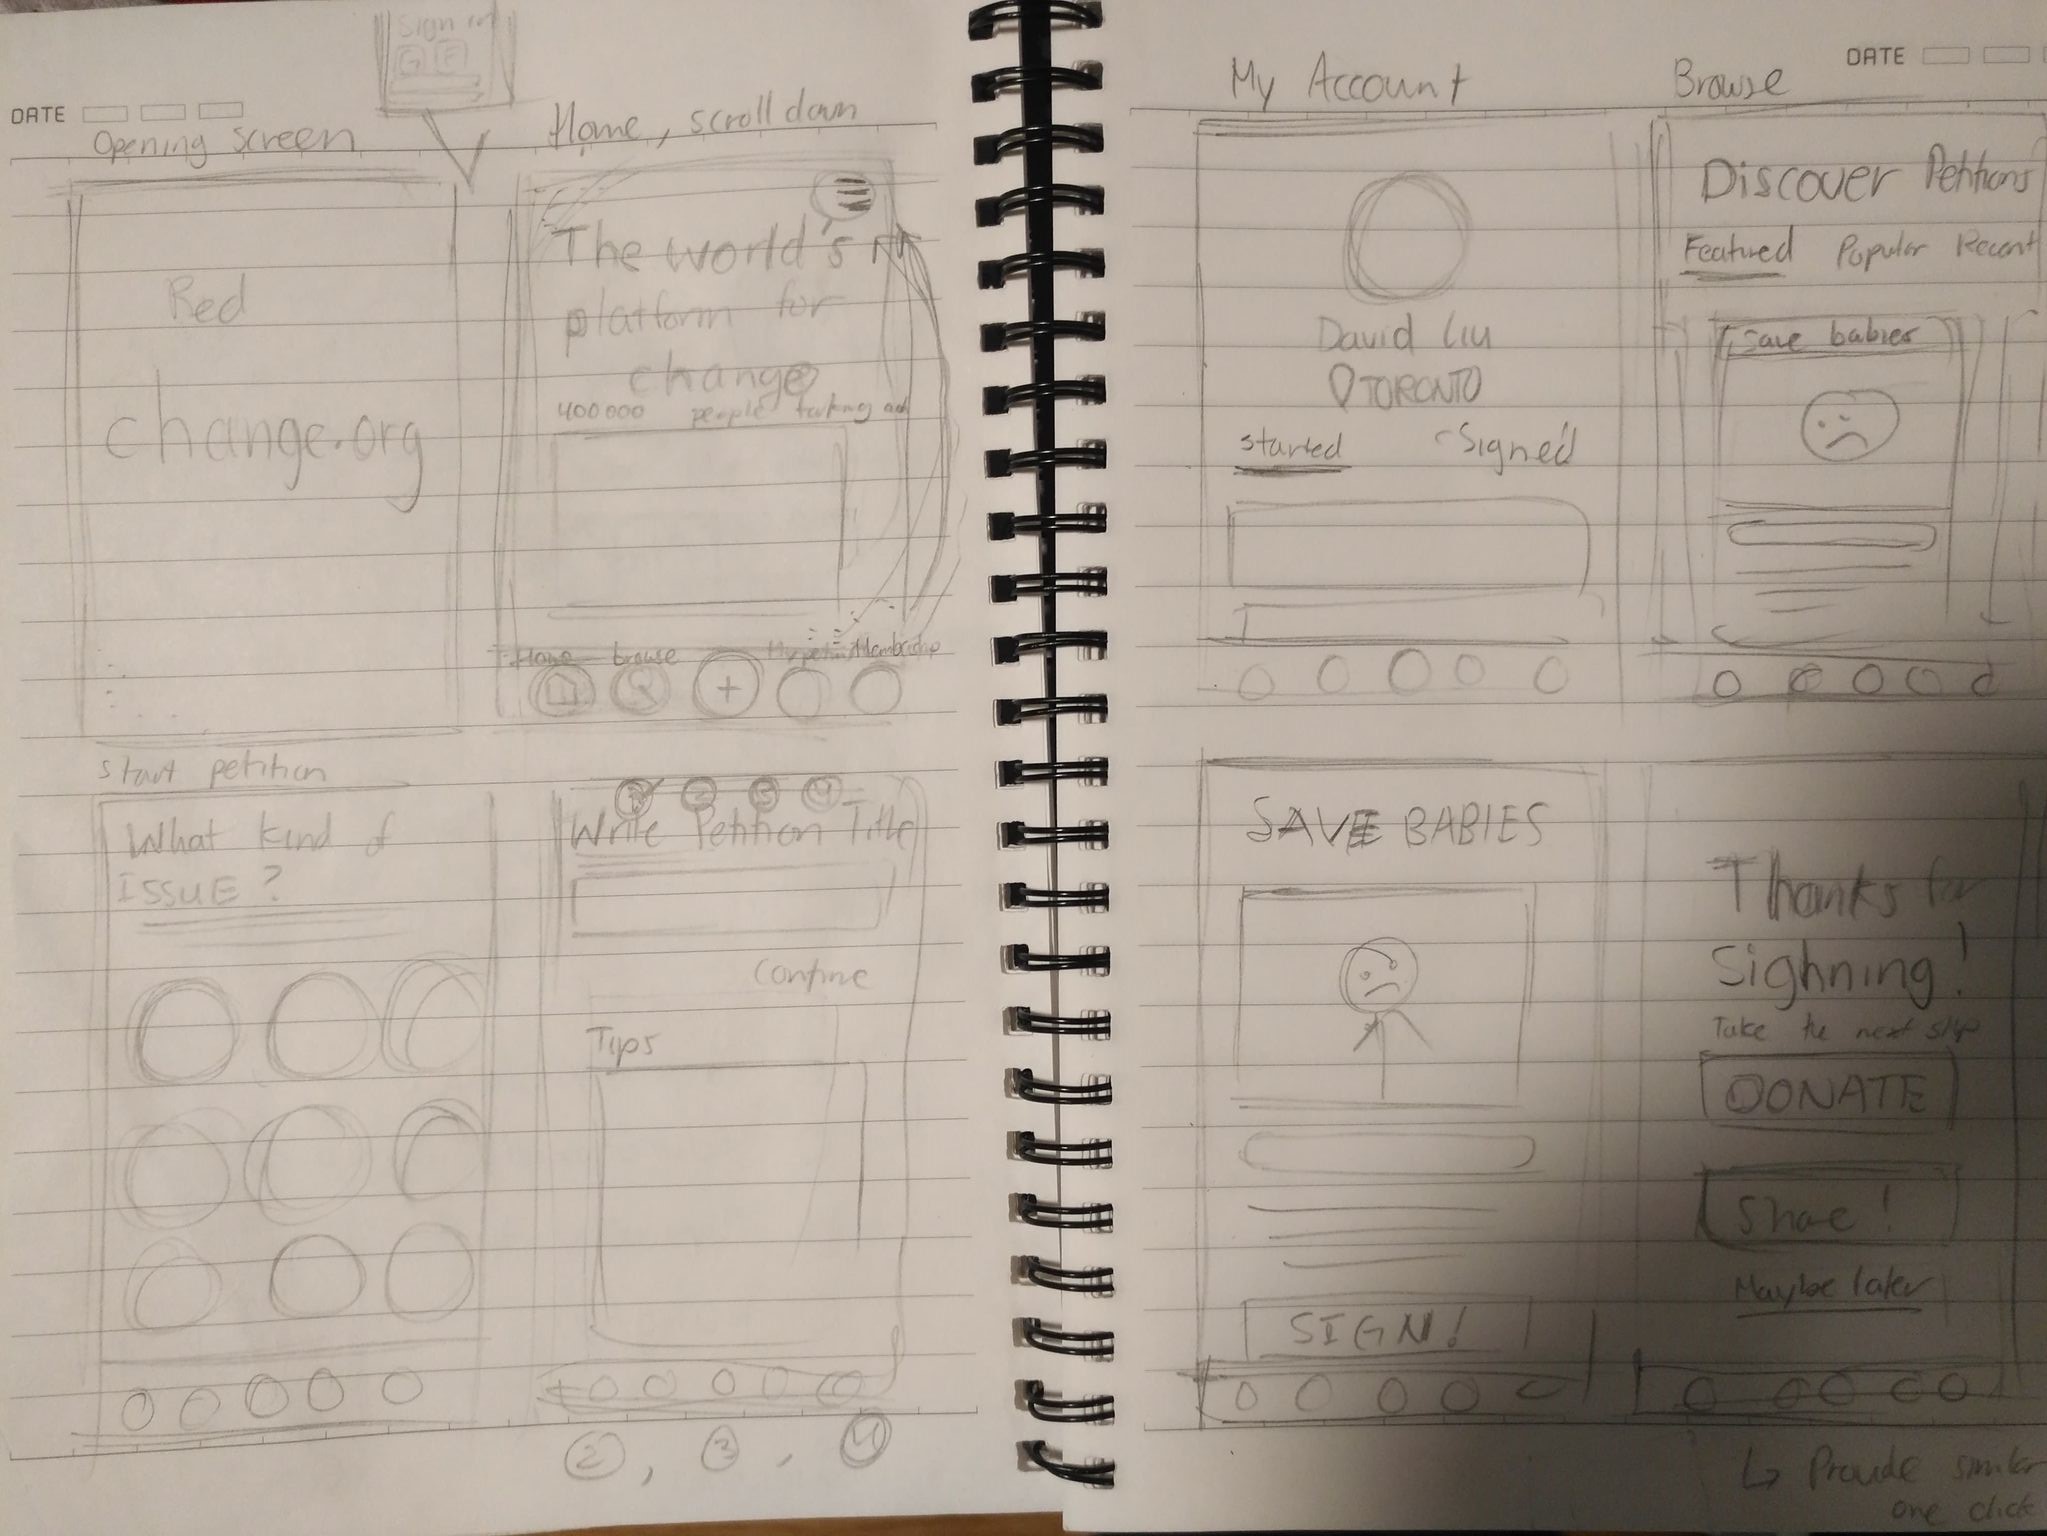 Sign in
G F
DATE
Opening Screen
Home, scroll down
Red
change.org
The world's
platform for
change
400000 people taking
Home browse Membership
+
start petition
What kind of
ISSUE?
1 2 3 4
Write Petition Title
Tips
2, 3, 4
DATE
My Account
Browse
David Liu
TORONTO
Started Signed
Discover Petitions
Featured Popular Recent
Save babies
SAVE BABIES
SIGN!
Thanks for
Sighning!
Take the next step
DONATE
Share!
Maybe later
↳ Provide similar
one click